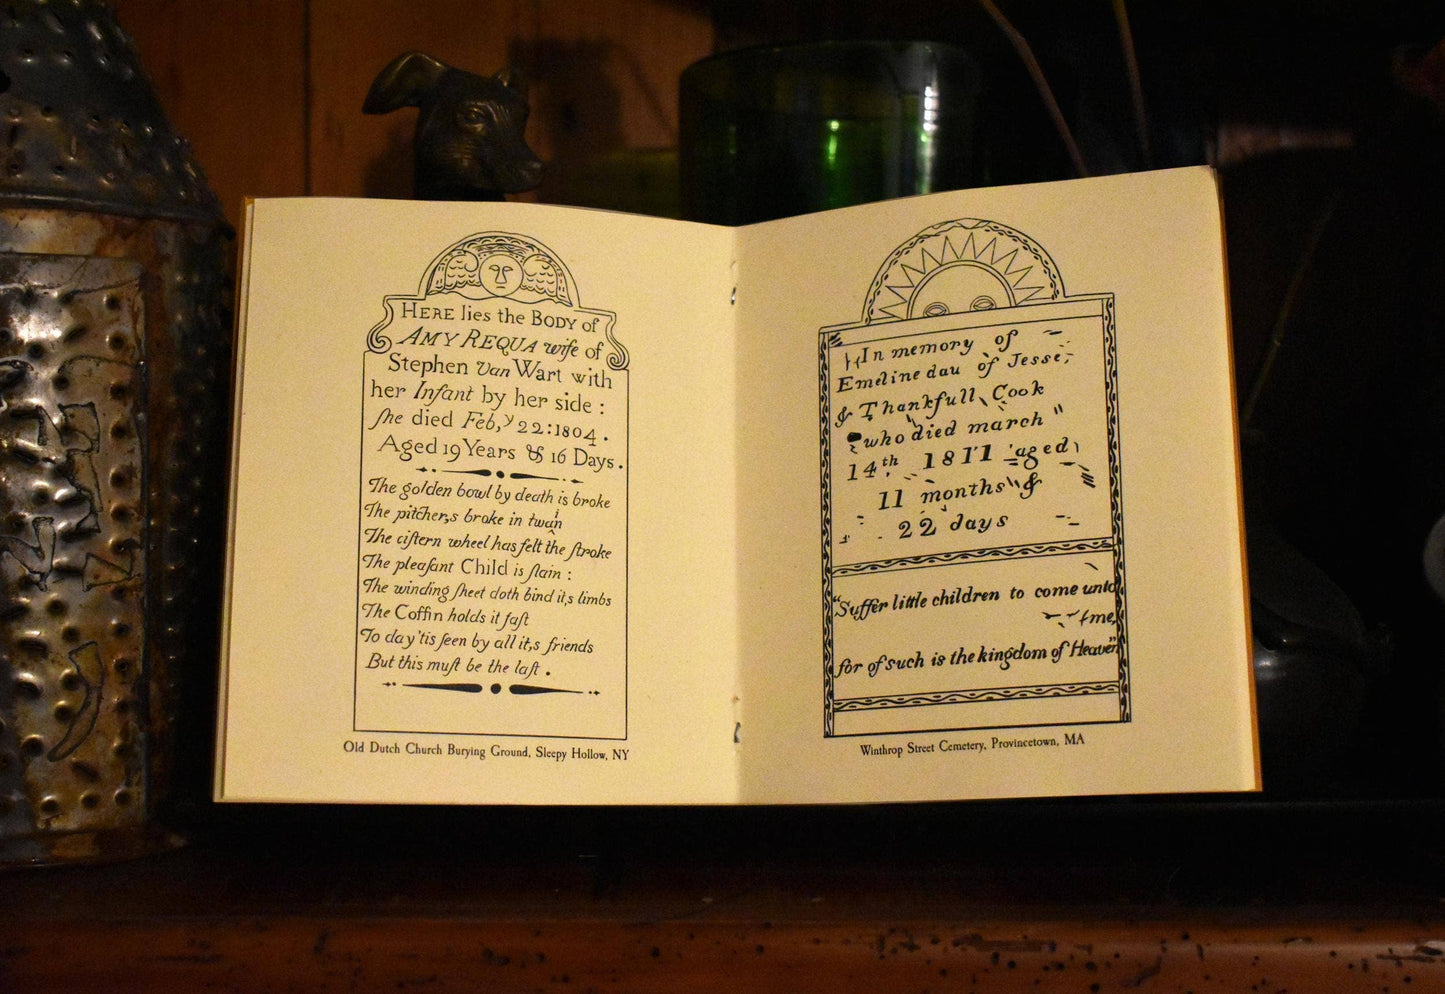 HERE lies the BODY of
AMY REQUA wife of
Stephen van Wart with
her Infant by her side :
ſhe died Feb,y 22:1804.
Aged 19 Years & 16 Days.
The golden bowl by death is broke
The pitcher,s broke in twain
The ciſtern wheel has felt the ſtroke
The pleaſant Child is ſlain :
The winding ſheet doth bind it,s limbs
The Coffin holds it faſt
To day 'tis ſeen by all it,s friends
But this muſt be the laſt .
Old Dutch Church Burying Ground, Sleepy Hollow, NY
In memory of
Emeline dau of Jesse,
& Thankfull Cook
who died march
14th 1811 aged
11 months &
22 days
"Suffer little children to come unto
me,
for of such is the kingdom of Heaven"
Winthrop Street Cemetery, Provincetown, MA